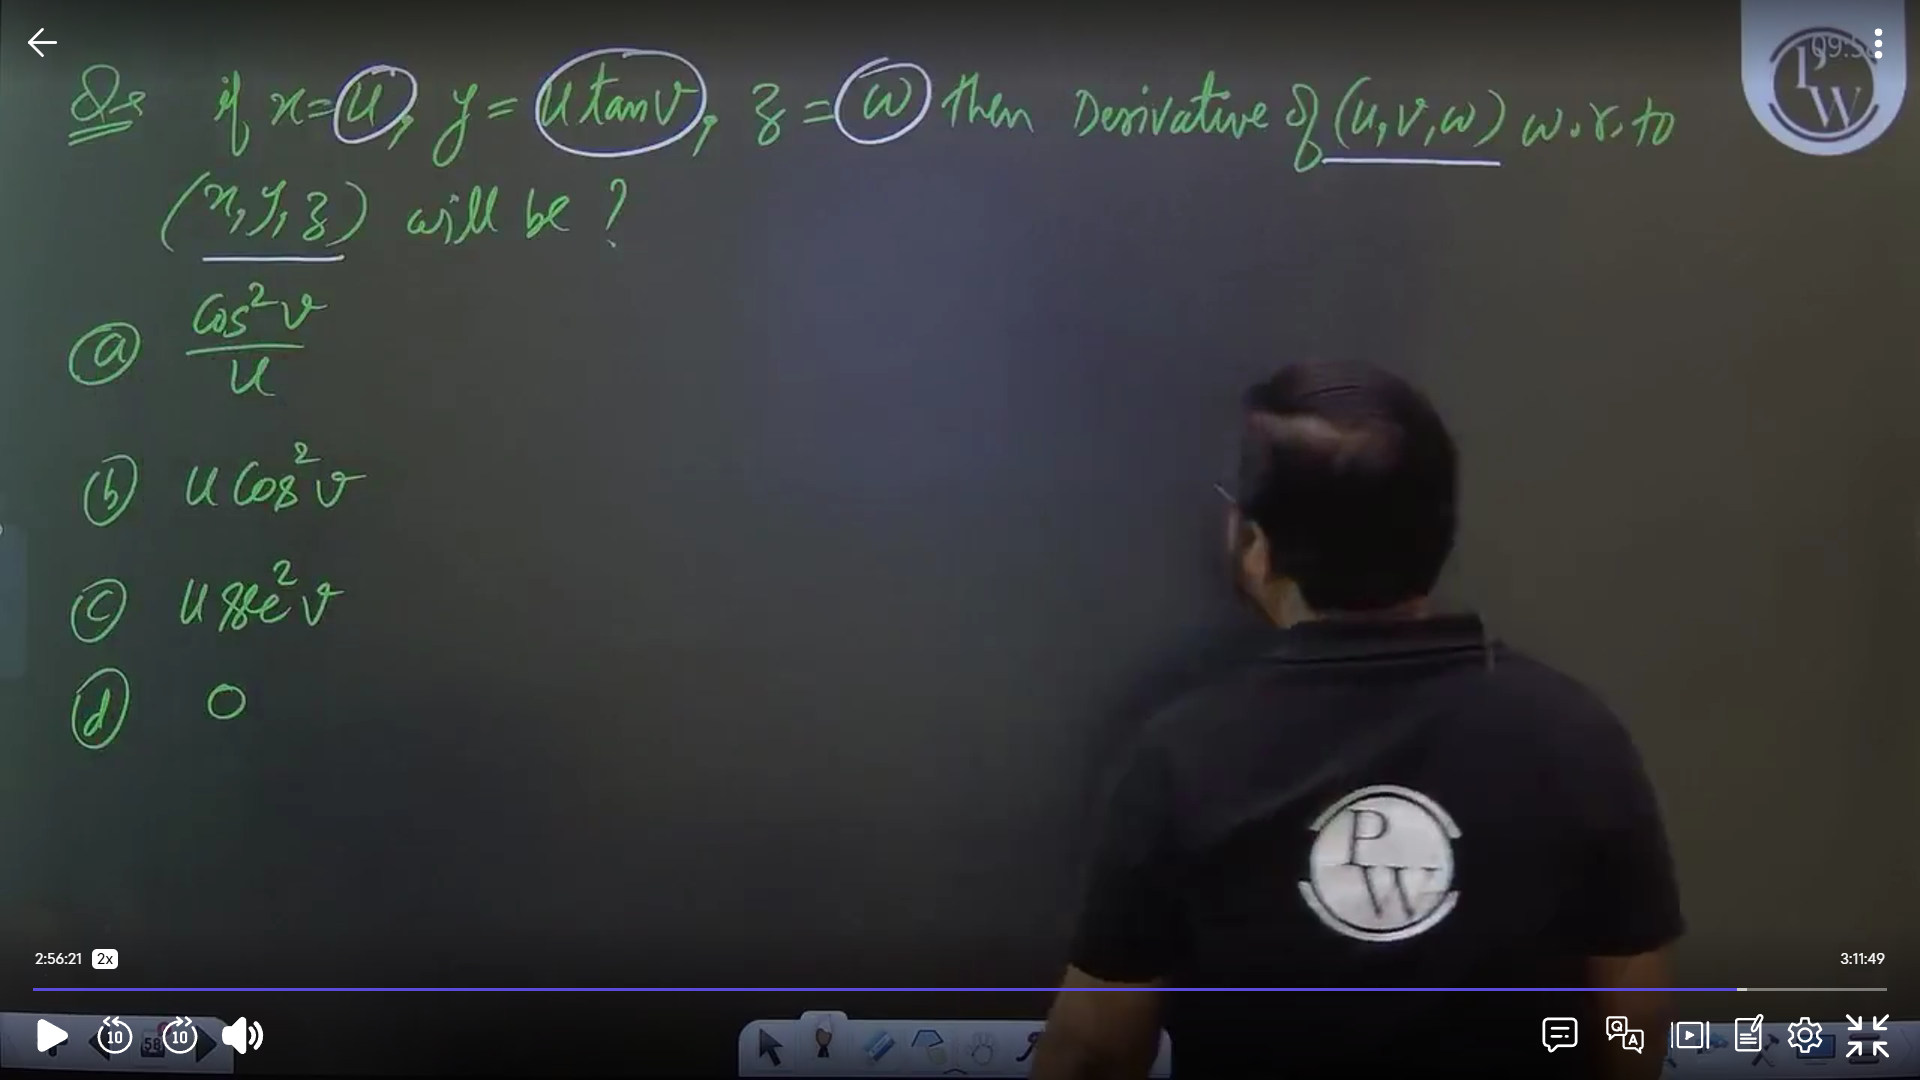 Q→ if x=u, y= u tanv, z = w then Derivative of (u,v,w) w.r.to
(x,y,z) will be ?
(a) Cos²v / u
(b) u Cos²v
(c) u sec²v
(d) 0
PW
PW
2:56:21 2x
3:11:49
10 10
58
Q A